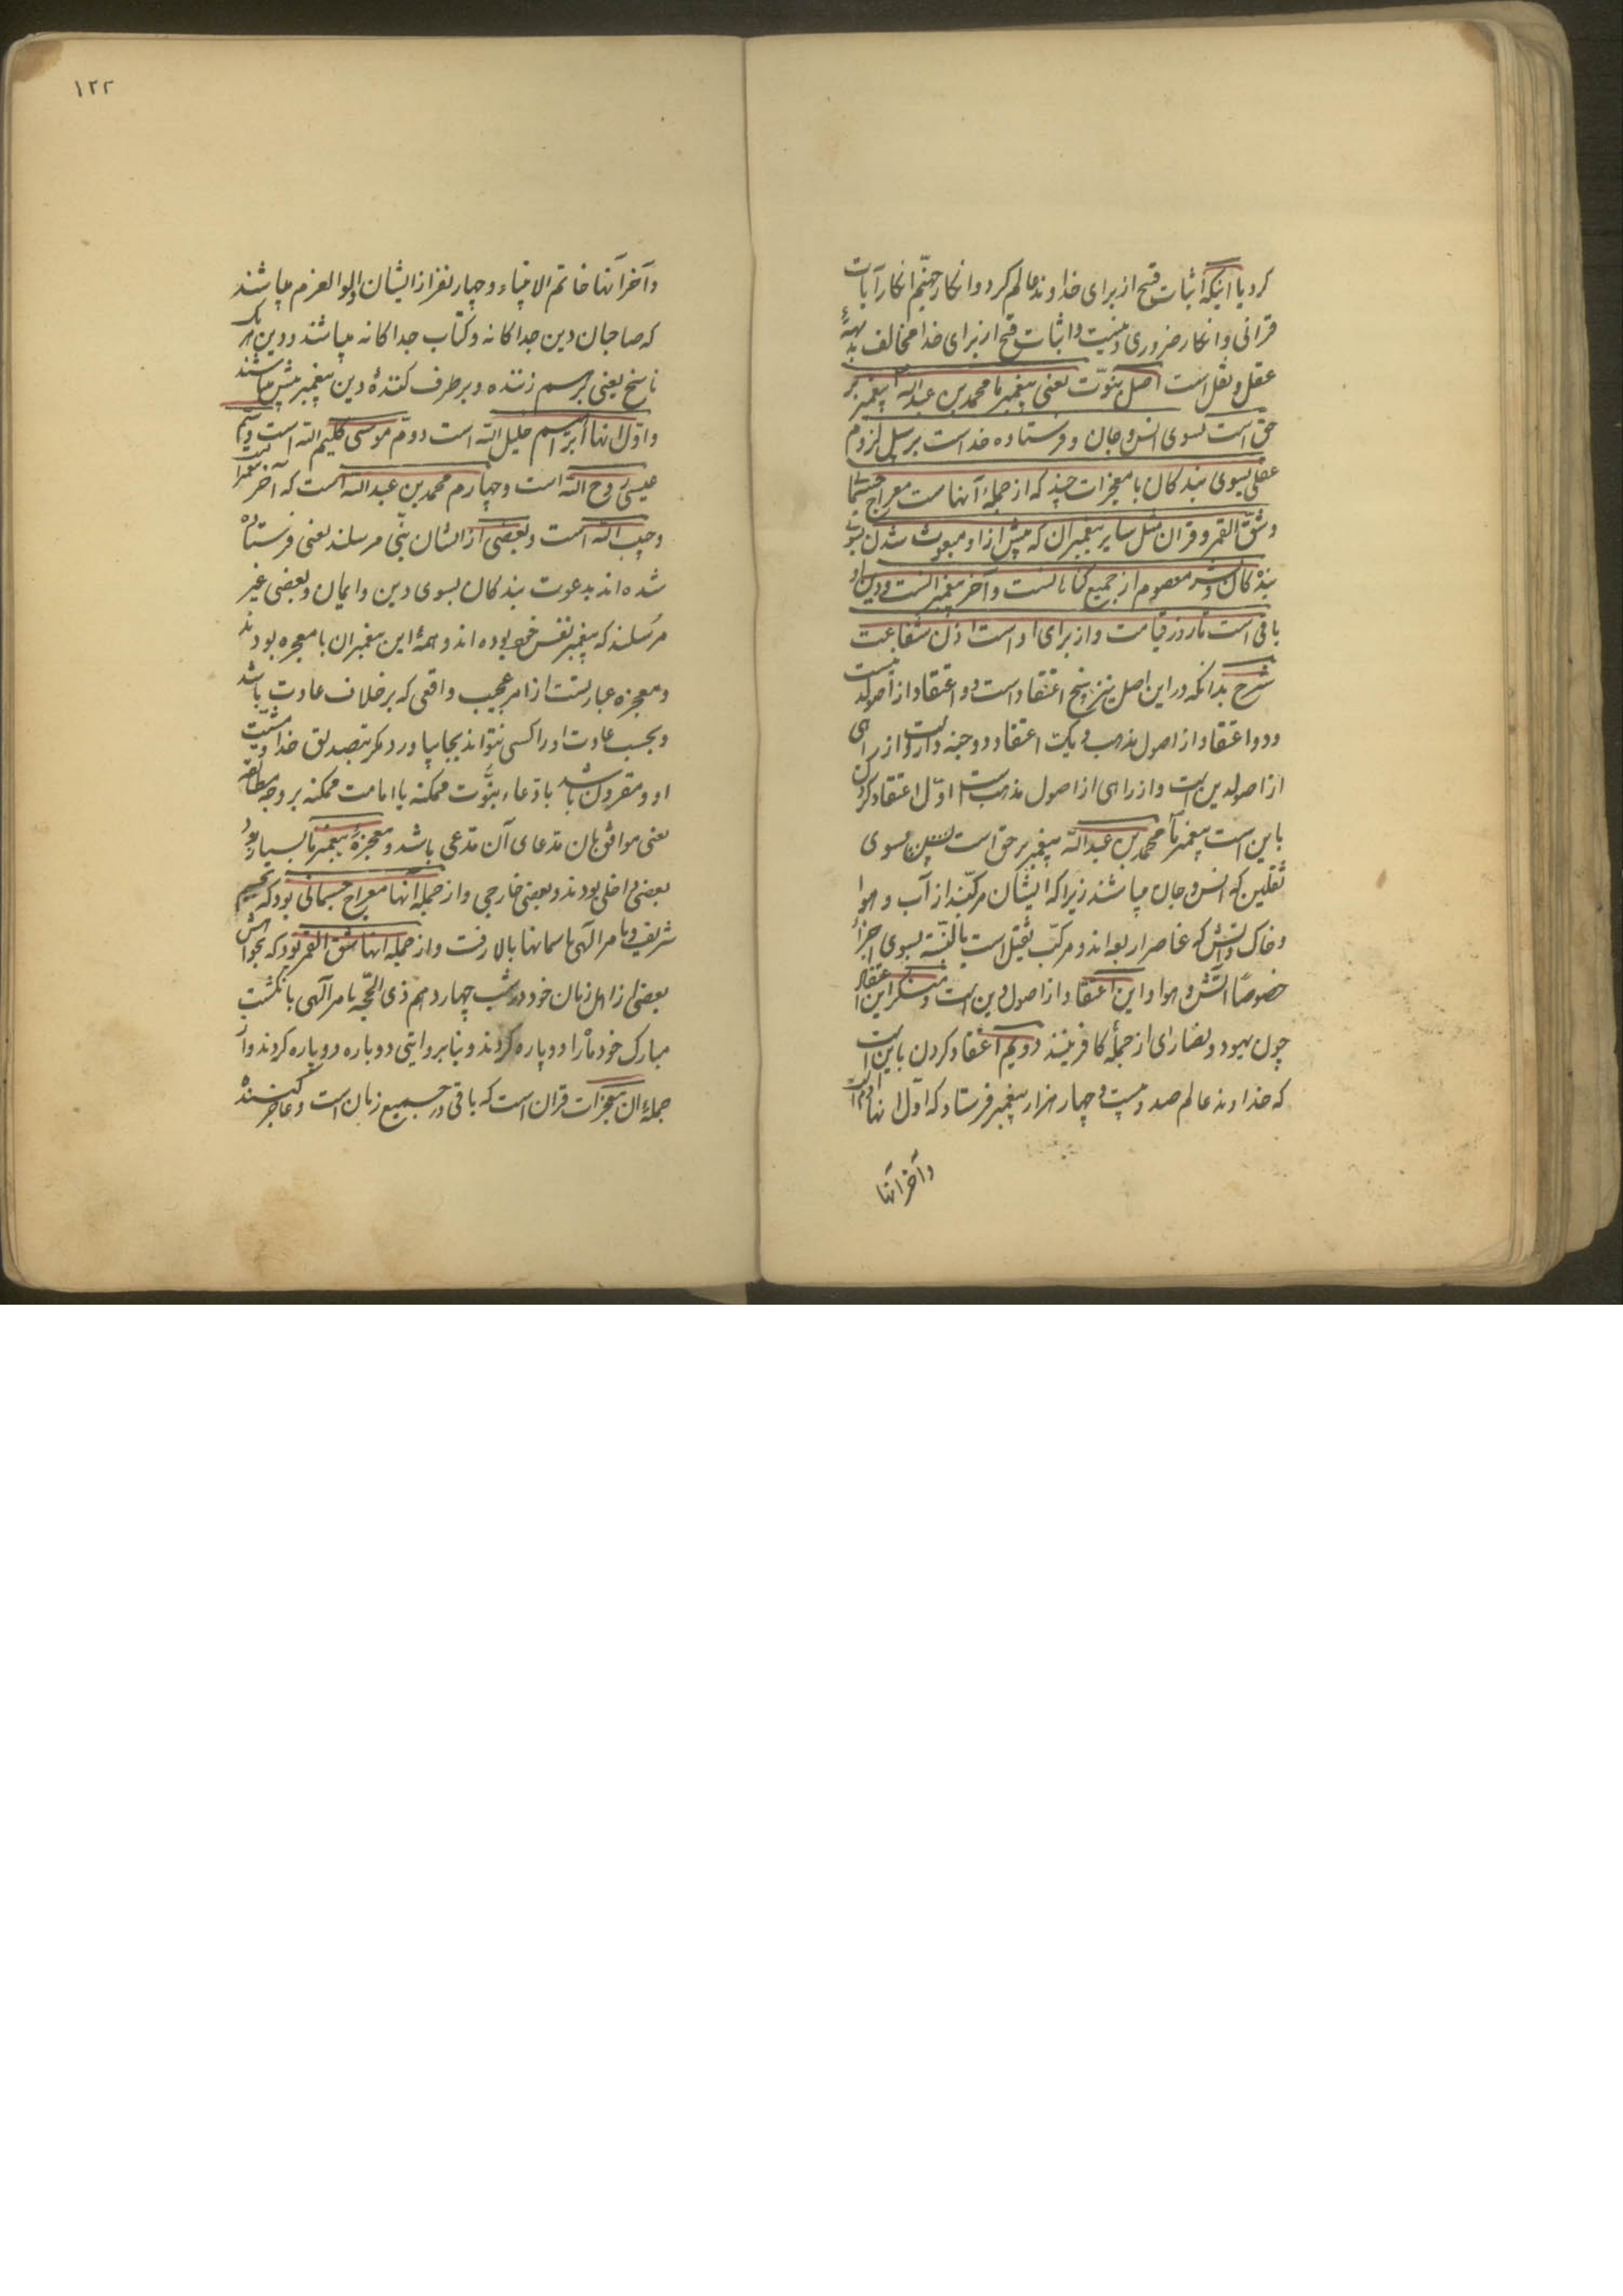 کرد یا اینکه اثبات قبح از برای خداوند عالم کرد و انکار جهنّم انکار آیات
قرانی و انکار ضروری دینیت و اثبات قبح از برای خدا مخالف بدیههٔ
عقل و نقل است اصل نبوّت یعنی پیغمبر ما محمد بن عبدالله پیغمبر بر
حق است بسوی انس و جان و فرستاده خداست بر سبیل لزوم
عقلی بسوی بندکان با معجزات چند که از جملهٔ آنهاست معراج جسمانی
و شقّ القمر و قران مثل سایر پیغمبران که پیش از او مبعوث شدن بسوی
بندکان و معصوم از جمیع کناهانست و آخر پیغمبرانست و دین او
باقی است تا روز قیامت و از برای او است اذن شفاعت
شرح بدانکه در این اصل نیز پنج اعتقاد است دو اعتقاد از اصولدینست
و دو اعتقاد از اصول مذهب و یک اعتقاد دو جنبه دارد از راهی
از اصولدین است و از راهی از اصول مذهب است اوّل اعتقاد کردن
باین است پیغمبر ما محمد بن عبدالله پیغمبر بر حق است بسوی
ثقلین که انس و جان میباشند زیرا که ایشان مرکبند از آب و هوا
و خاک و آتش که عناصر اربعه اند و مرکب ثقیل است بالنسبة بسوی اجزاء
خصوصًا آتش و هوا و این اعتقاد از اصول دین است و منکر این اعتقاد
چون یهود و نصارای از جملهٔ کافرینند دویم اعتقاد کردن باین است
که خداوند عالم صد و بیست و چهار هزار پیغمبر فرستاد که اوّل آنها آدم است
و آخر آنها
١٢٢
و آخر آنها خاتم الانبیاء و چهار نفر از ایشان اولوالعزم میباشند
که صاحبان دین جداکانه و کتاب جداکانه میباشند و دین هر یک
ناسخ یعنی بر هم زننده و برطرف کنندهٔ دین پیغمبر پیش میباشند
و اوّل آنها ابراهیم خلیل الله است دوّم موسی کلیم الله است و سیّم
عیسی روح الله است و چهارم محمد بن عبدالله است که آخر پیغمبرانست
و حبیب الله است و بعضی از ایشان نبّی مرسلند یعنی فرستاده
شده اند بدعوت بندکان بسوی دین و ایمان و بعضی غیر
مرسلند که پیغمبر نفس خود بوده اند و همهٔ این پیغمبران با معجزه بودند
و معجزه عبارتست از امر عجیب واقعی که بر خلاف عادت باشد
و بحسب عادت او را کسی نتواند بجا بیاورد مکر بتصدیق خدا و مشیّت
او و مقرون باشد بادّعاء نبوّت ممکنه یا امامت ممکنه بر وجه مطابقه
یعنی موافق بان مدّعای آن مدّعی باشد و معجزهٔ پیغمبر ما بسیار بود
بعضی داخلی بودند و بعضی خارجی و از جملهٔ آنها معراج جسمانی بود که بجسم
شریف و بامر الهی باسمانها بالا رفت و از جملهٔ آنها شق القمر بود که بخواهش
بعضی از اهل زمان خود در شب چهاردهم ذی الحجّه بامر الهی با نکشت
مبارک خود ماه را دو پاره کردند و بنابر روایتی دو باره دو پاره کردند و از
جملهٔ ان معجزات قران است که باقی در جمیع زمان است و عاجز کننده